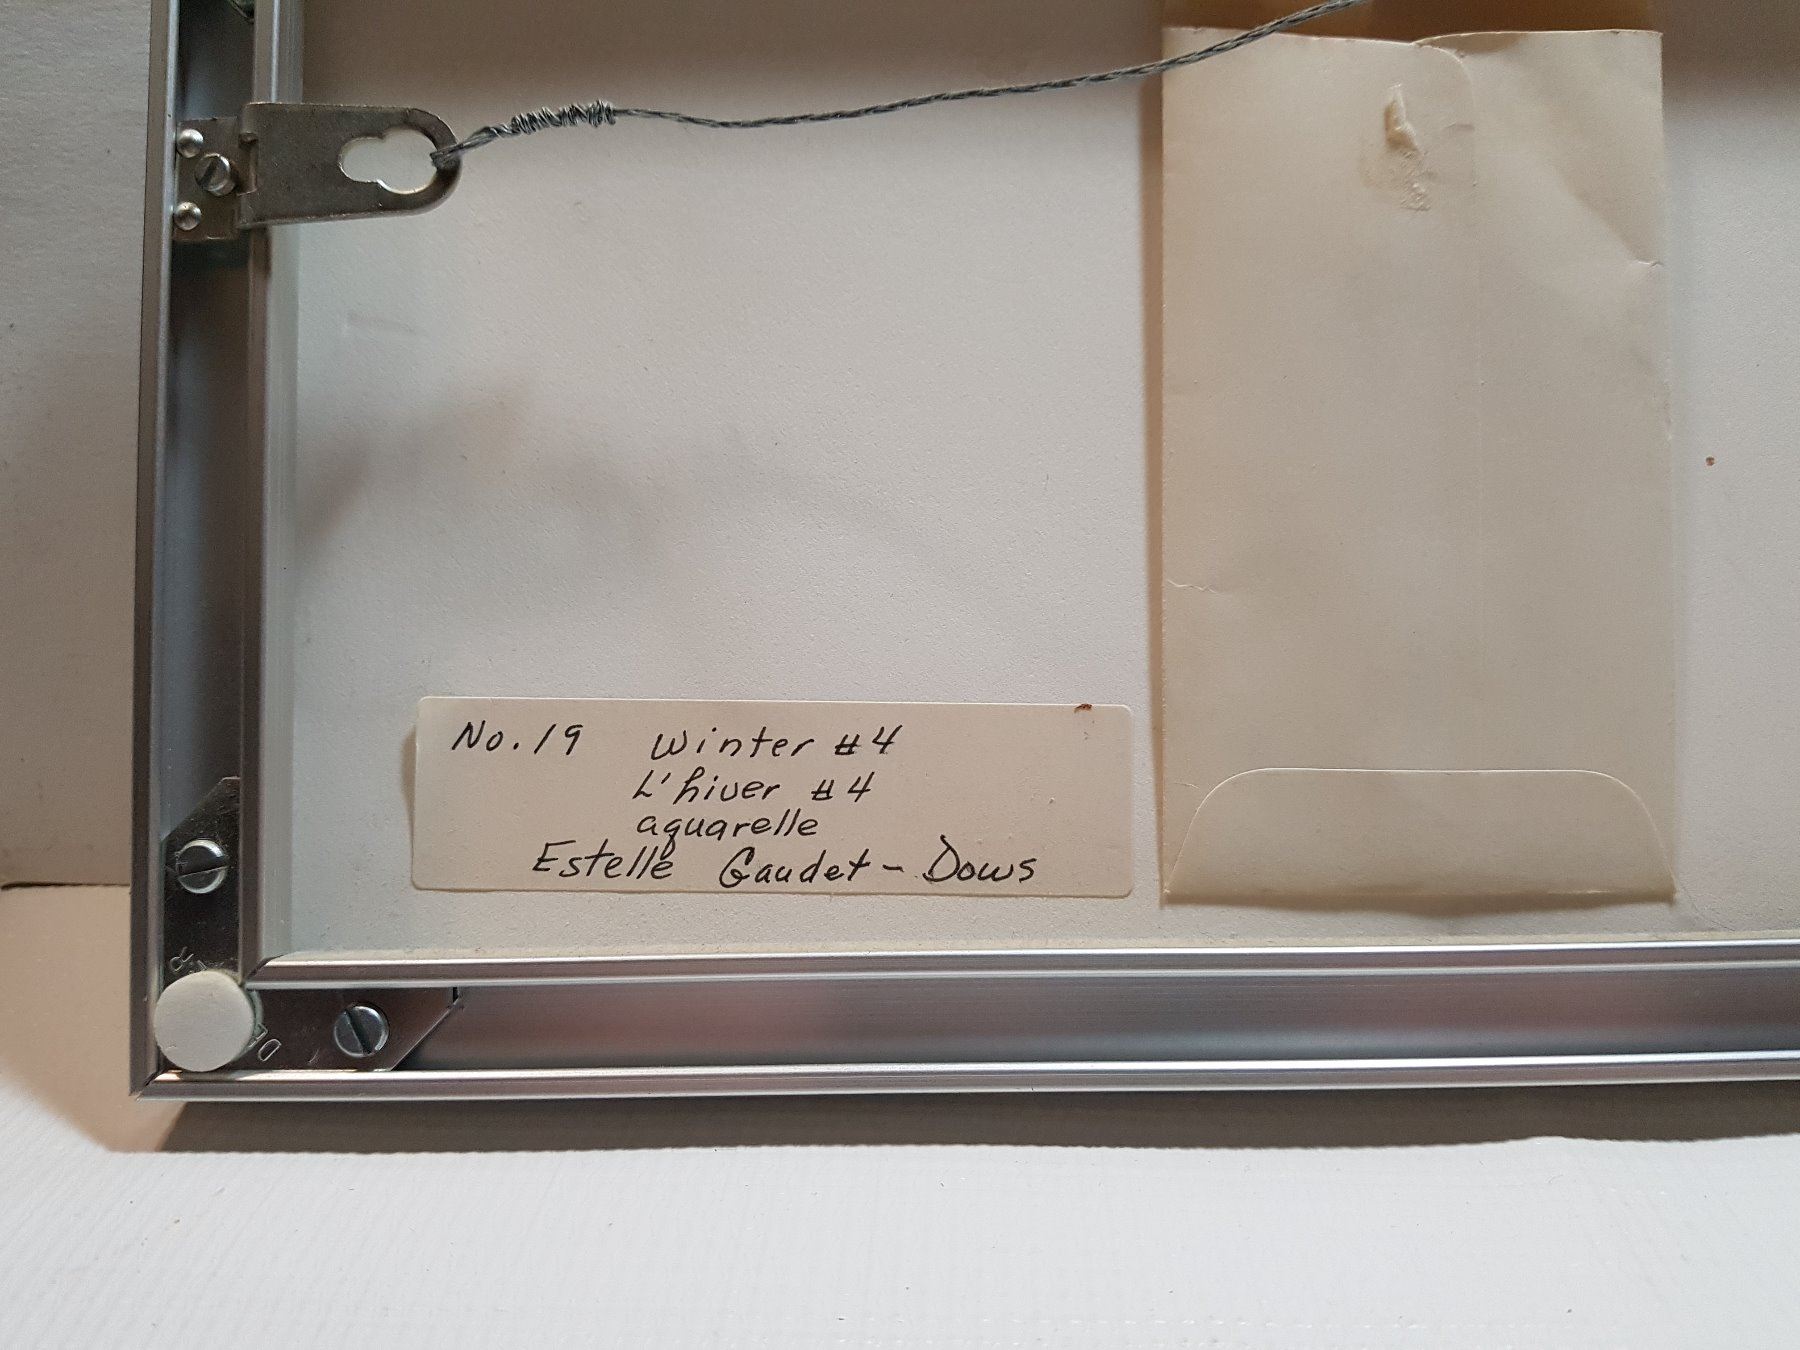 No. 19 Winter #4
L'hiver #4
aquarelle
Estelle Gaudet - Dows